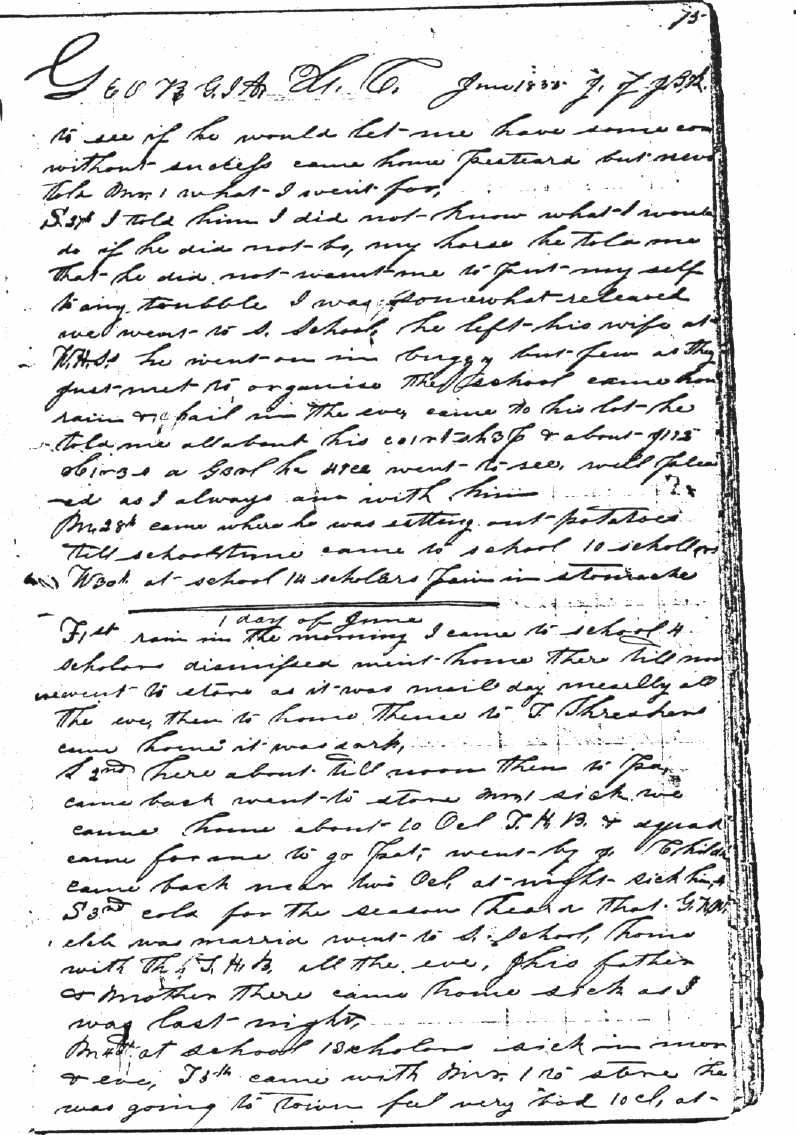 75
GEORGIA H. C. June 1838
to see if he would let me have some
without success came home but
told Mr. 1 what I went for,
S. 27th I told him I did not know what I would
do if he did not be, my horse he told me
that he did not want me to put my self
to any toubble I was somewhat releaved
we went to S. School, he left his wife at
he went on in buggy but few as they
just met to organise the school came hom
rain & hail in the eve, came to his lot he
told me all about his & about
a he went to see, well
ed as I always am with him
M. 28th came where he was setting out potatoes
till school time came to school 10 schollers
W 30th at school 14 scholars pain in stomache
1 day of June
F 1st rain in the morning I came to school 4
scholars dismissed went home there till
went to store as it was mail day all
the eve, then to home thense to T
came home it was dark,
S 2nd here about till noon then to Pa,
came back went to store Mr. 1 sick we
came home about 10 Ocl T. H. B. &
came for me to go Pat, went by
came back near two Ocl, at night sick
S 3rd cold for the season hear that
was marrid went to S. School, home
with T. H. B. all the eve, his father
& Mother there came home sick as I
was last night,
M 4th at school 13 scholars sick in mor
& eve, T 5th came with Mr. 1 to store he
was going to town feel very bad 10 cl, at